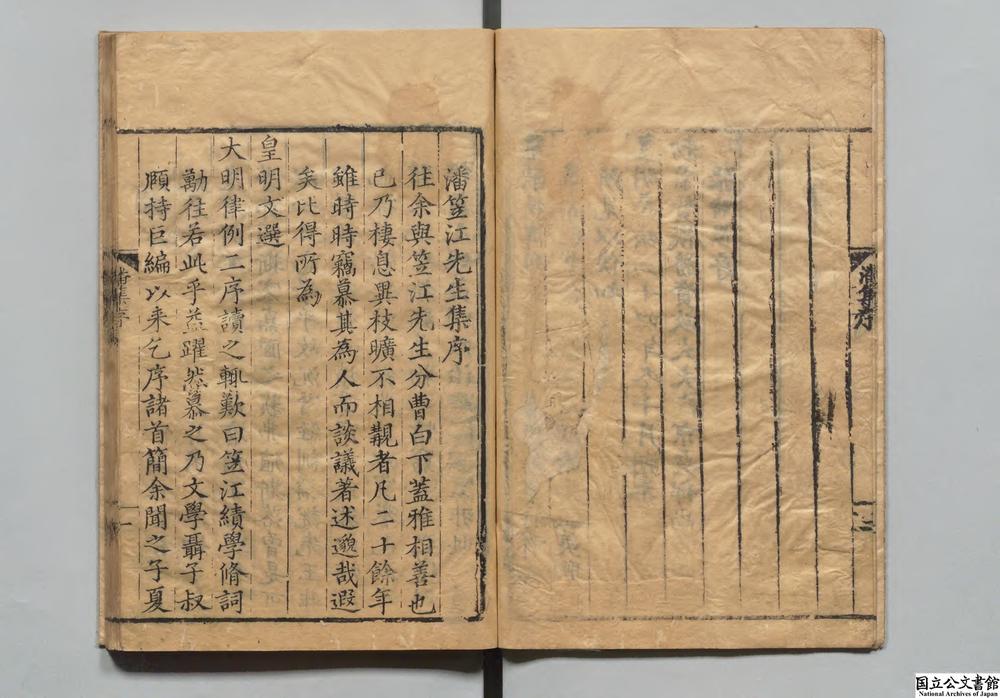 潘集序
潘笠江先生集序
往余與笠江先生分曹白下蓋雅相善也
已乃棲息異枝曠不相覯者凡二十餘年
雖時時竊慕其為人而談議著述邈哉遐
矣比得所為
皇明文選
大明律例二序讀之輒歎曰笠江績學脩詞
勤往若此乎益躍然慕之乃文學聶子叔
頎持巨編以来乞序諸首簡余聞之子夏
潘集序
一
国立公文書館
National Archives of Japan